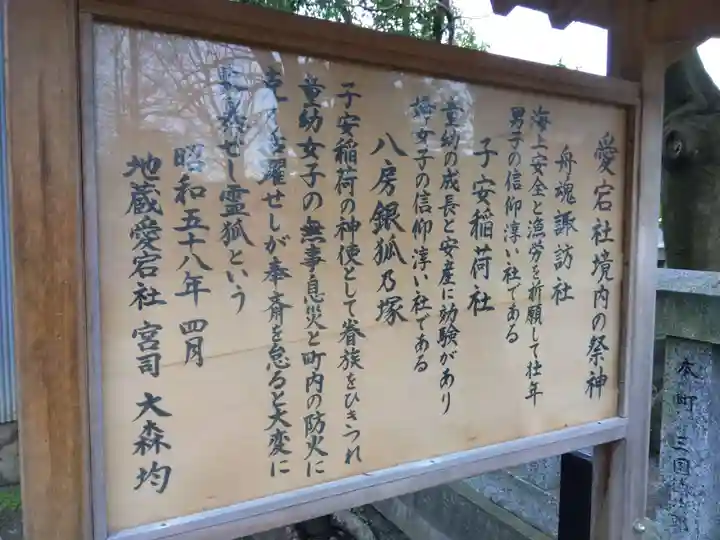 愛宕社境内の祭神
舟魂諏訪社
海上安全と漁労を祈願して壮年
男子の信仰淳い社である
子安稲荷社
童幼の成長と安産に効験があり
婦女子の信仰淳い社である
八房銀狐乃塚
子安稲荷の神使として眷族をひきつれ
童幼女子の無事息災と町内の防火に
走て活躍せしが奉斎を怠ると大変に
せし霊狐という
昭和五十八年 四月
地蔵愛宕社 宮司 大森均
本町 三国